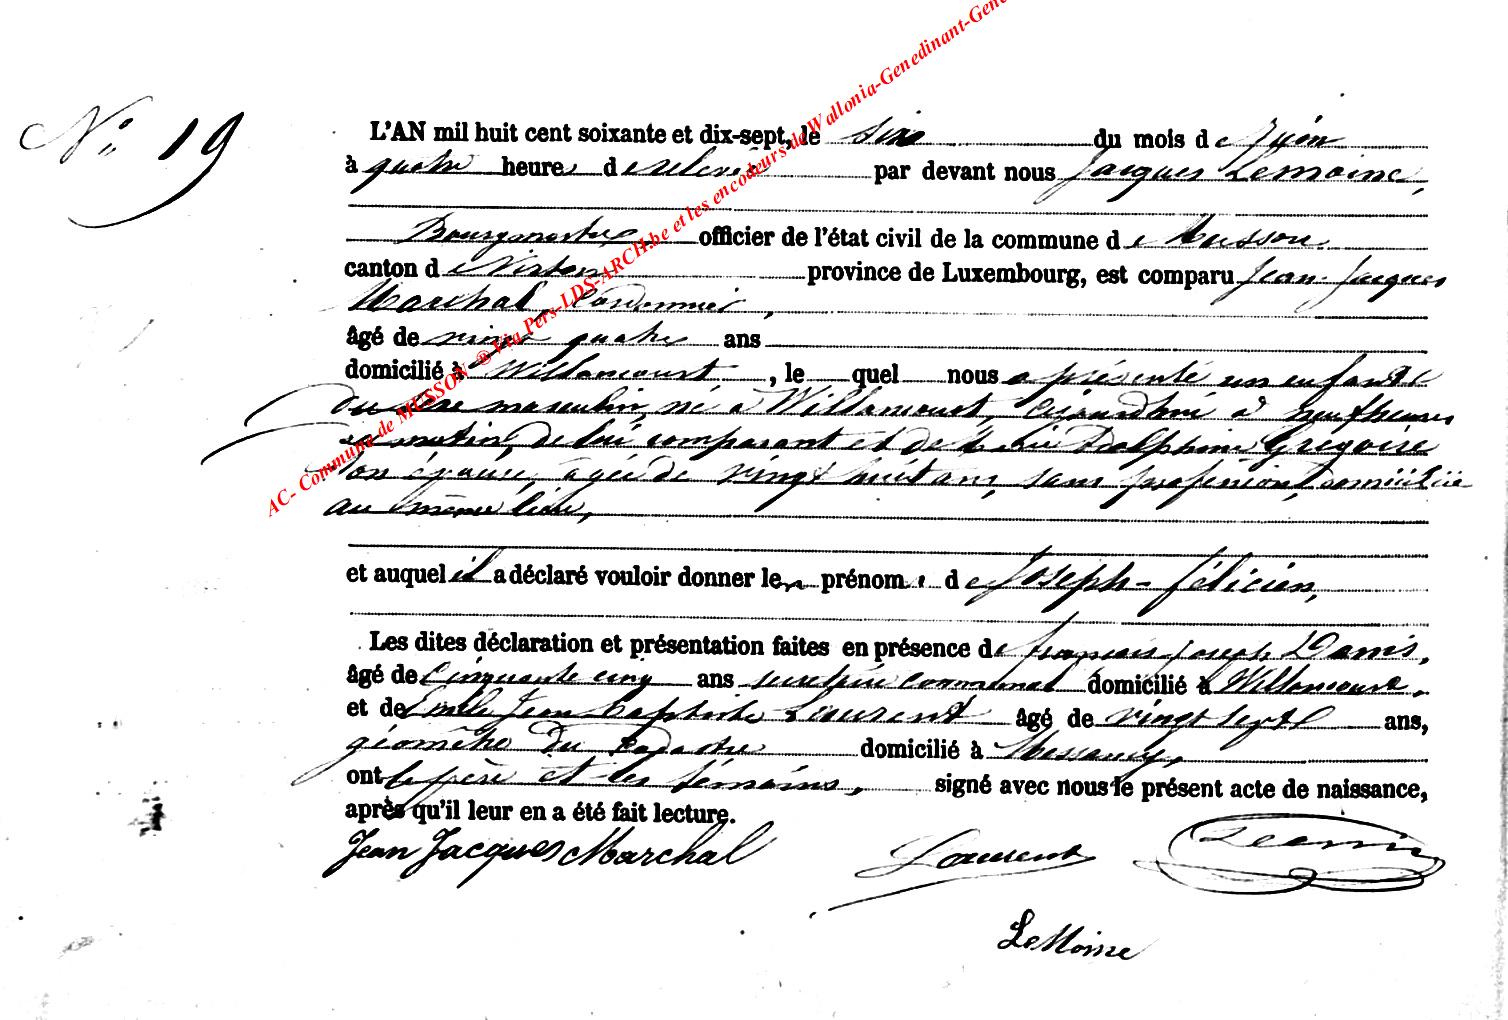 N° 19
L'AN mil huit cent soixante et dix-sept, le six du mois de Juin
à quatre heures de relevée par devant nous Jacques Lemoine,
Bourgmestre officier de l'état civil de la commune de Musson
canton de Virton province de Luxembourg, est comparu Jean-Jacques
Marchal, Cordonnier,
âgé de vingt quatre ans
domicilié à Willancourt, le quel nous a présenté un enfant
du sexe masculin, né à Willancourt, aujourd'hui à neuf heures
du matin, de lui comparant et de Delphine Grégoire
son épouse, agée de vingt huit ans, sans profession, domiciliée
au même lieu,
et auquel il a déclaré vouloir donner les prénoms de Joseph-Félicien,
Les dites déclaration et présentation faites en présence de françois Joseph Danis,
âgé de Cinquante cinq ans secrétaire communal domicilié à Willancourt,
et de Emile Jean Baptiste Laurent âgé de vingt sept ans,
géomètre du cadastre domicilié à Messancy,
ont le père et les témoins, signé avec nous le présent acte de naissance,
après qu'il leur en a été fait lecture.
Jean Jacques Marchal Laurent
LeMoine
AC- Commune de MUSSON ® Via Pers-LDS-ARCH.be et les encodeurs de Wallonia-Genedinant-Gene